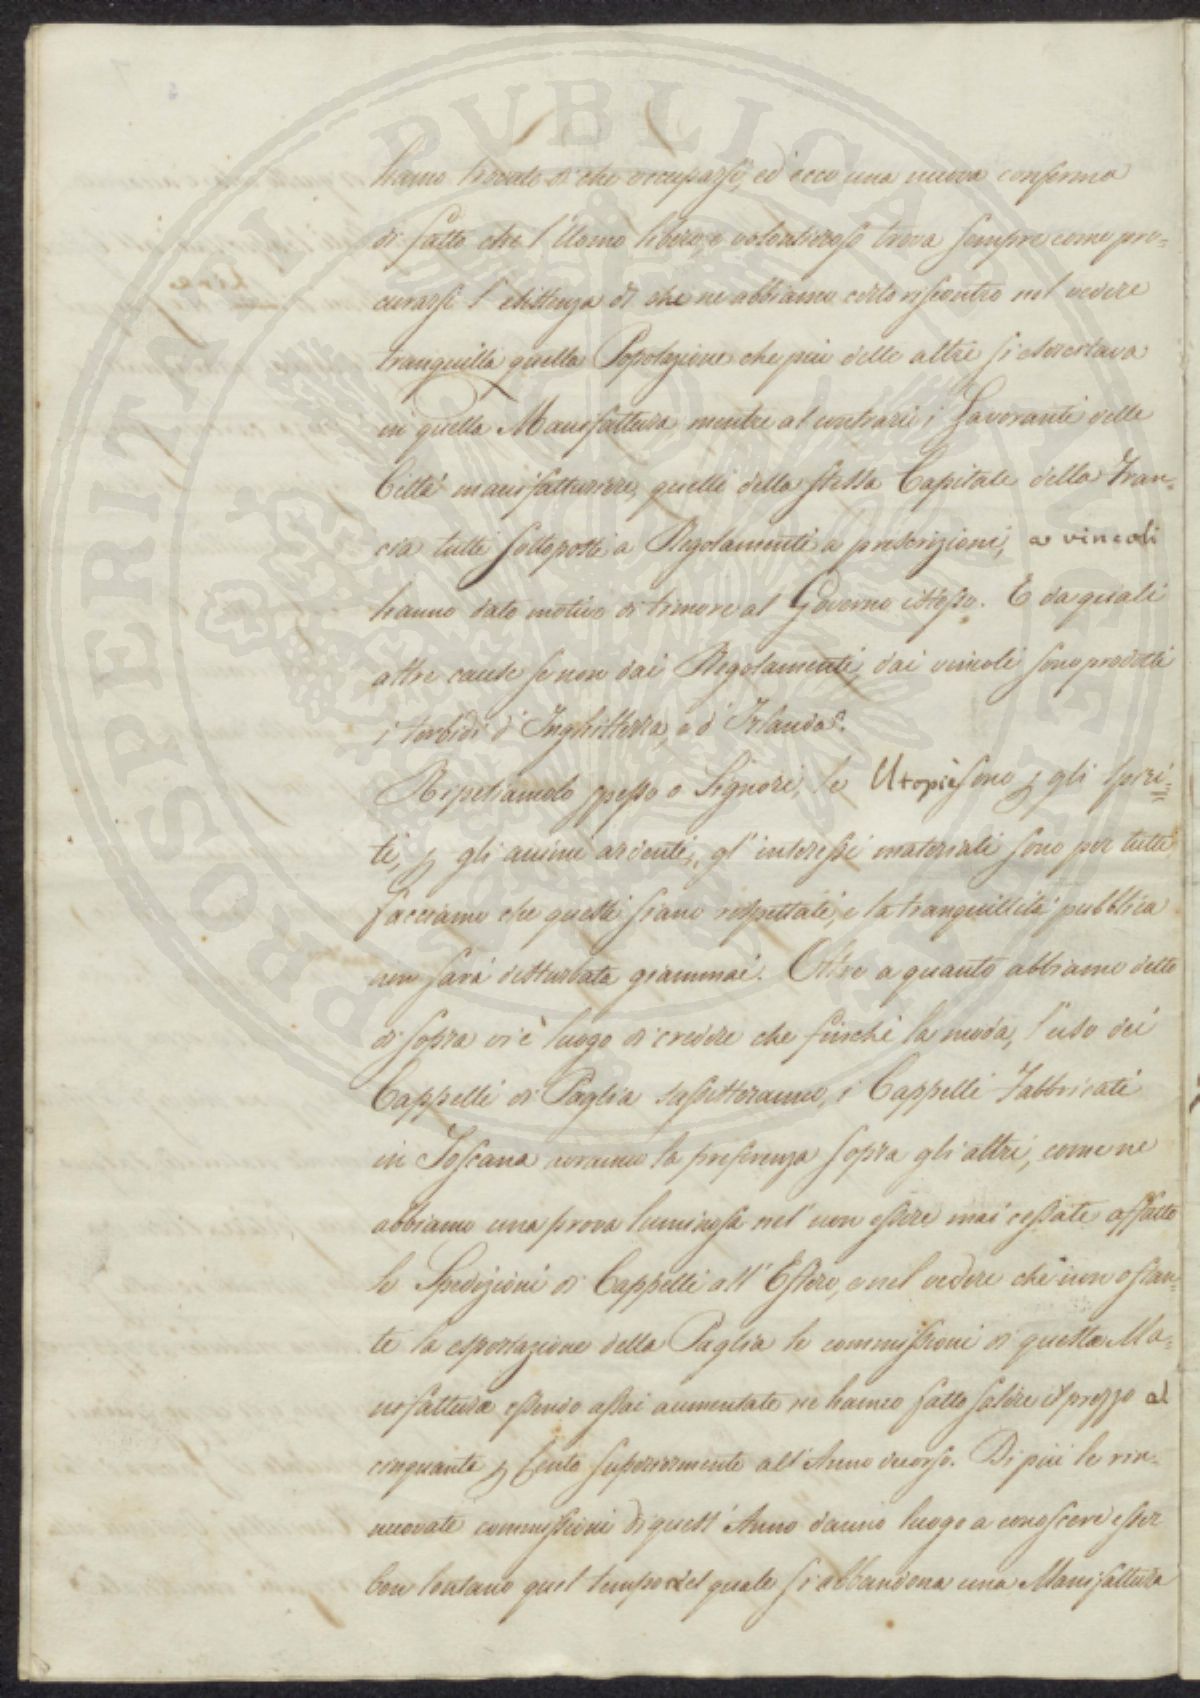 PROSPERITATI PUBLICAE AUGENDAE
hanno trovato di che occuparsi, ed ecco una nuova conferma
di fatto che l'Uomo libero, e volonteroso trova sempre come pro=
curarsi l'esistenza di che ne abbiamo certo riscontro nel vedere
tranquilla quella Popolazione che più delle altre si esercitava
in quella Manifattura, mentre al contrario i Lavoranti delle
Città manifatturiere, quelli della stessa Capitale della Fran=
cia tutti sottoposti a Regolamenti a prescrizioni, a vincoli
hanno dato motivo di timore al Governo istesso. E da quali
altre cause se non dai Regolamenti, dai vincoli sono prodotti
i torbidi d'Inghilterra, e d'Irlanda?
Ripetiamolo spesso o Signori, le Utopie sono p gli spiri=
ti, p gli animi ardenti, gl'interessi materiali sono per tutti
facciamo che questi siano rispettati, e la tranquillità pubblica
non sarà disturbata giammai. Oltre a quanto abbiamo detto
di sopra vi è luogo di credere che finchè la moda, l'uso dei
Cappelli di Paglia sussisteranno, i Cappelli Fabbricati
in Toscana avranno la preferenza sopra gli altri, come ne
abbiamo una prova luminosa nel non essere mai cessate affatto
le Spedizioni di Cappelli all'Estero, e nel vedere che non ostan=
te la esportazione della Paglia le commissioni di questa Ma=
nifattura essendo assai aumentate ne hanno fatto salire il prezzo al
cinquanta p Cento superiormente all'Anno decorso. Di più le rin=
nuovate commissioni di quest'Anno danno luogo a conoscere esser
ben lontano quel tempo nel quale si abbandona una Manifattura